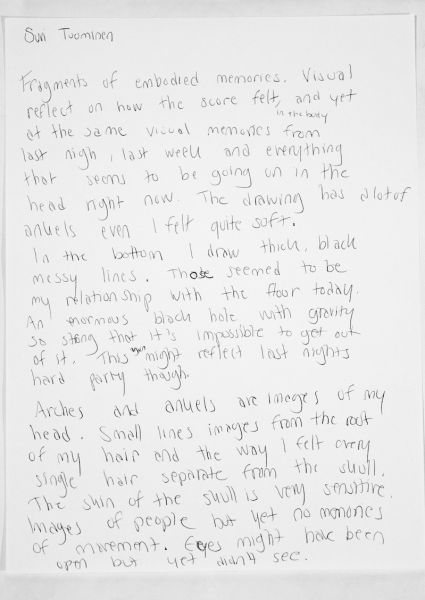 Suvi Tuominen
Fragments of embodied memories. Visual
reflect on how the score felt, and yet
in the body
at the same visual memories from
last nigh, last week and everything
that seems to be going on in the
head right now. The drawing has alotof
ankels even I felt quite soft.
In the bottom I draw thick, black
messy lines. Those seemed to be
my relationship with the floor today.
An enormous black hole with gravity
so stong that it's impossible to get out
of it. This might reflect last nights
hard party though.
Arches and ankels are images of my
head. Small lines images from the root
of my hair and the way I felt every
single hair separate from the skull.
The skin of the skull is very sensitive.
Images of people but yet no memories
of movement. Eyes might have been
open but yet didn't see.